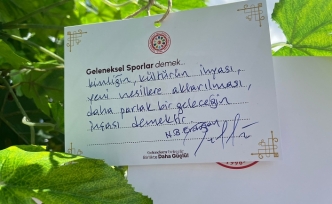 Geleneksel Sporlar demek..
kimliğin, kültürün ihyası,
yeni nesillere aktarılması,
daha parlak bir geleceğin
inşası demektir.
N.B Erdoğan
Birlikte Daha Güçlü!